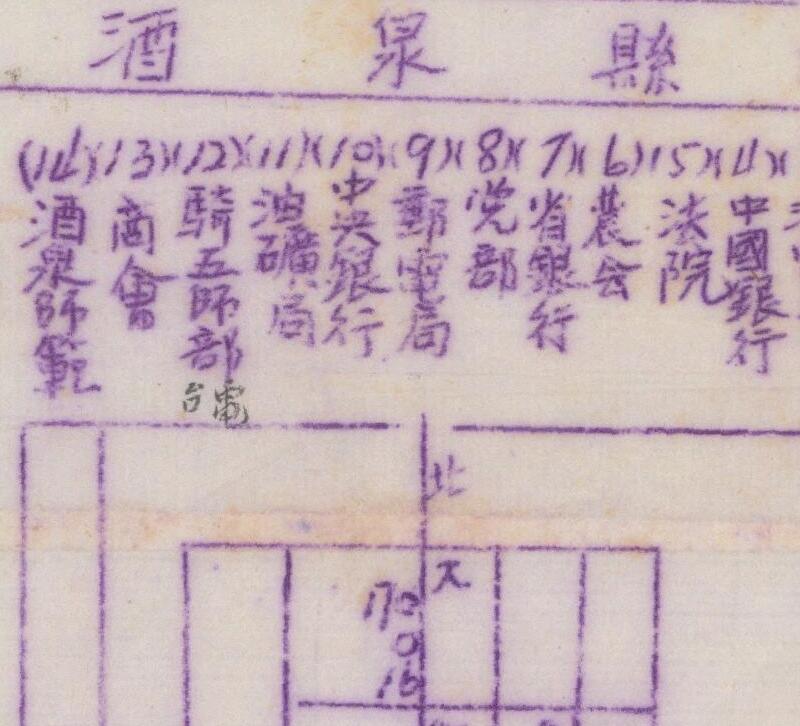 酒泉縣
(4) 中國銀行
(5) 法院
(6) 農会
(7) 省銀行
(8) 党部
(9) 郵電局
(10) 中央銀行
(11) 油礦局
(12) 騎五師部
電台
(13) 商會
(14) 酒泉師範
北
17
0
16